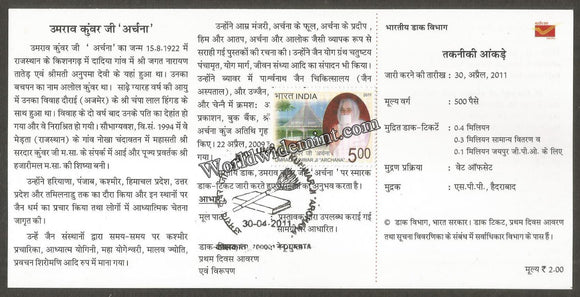 उमराव कुंवर जी 'अर्चना'
उमराव कुंवर जी 'अर्चना' का जन्म 15.8.1922 में
राजस्थान के किशनगढ़ में दादिया गांव में श्री जगत नारायण
तातेड़ एवं श्रीमती अनुपमा देवी के यहां हुआ था। उनका
बचपन का नाम अलोल कुंवर था। साढ़े ग्यारह वर्ष की आयु
में उनका विवाह दौराई (अजमेर) के श्री चंपा लाल हिंगड़ के
साथ हुआ था। विवाह के दो वर्ष बाद उनके पति का देहांत हो
गया और वे निराश्रित हो गयीं। सौभाग्यवश, वि.सं. 1994 में वे
मेड़ता (राजस्थान) के गांव नोखा चंदावतन में महासती श्री
सरदार कुंवर म.सा. के संपर्क में आईं और पूज्य प्रवर्तक श्री
हजारीमल म.सा. की शिष्या बनीं।
उन्होंने हरियाणा, पंजाब, कश्मीर, हिमाचल प्रदेश, उत्तर
प्रदेश और तमिलनाडु तक का दौरा किया और इन स्थानों पर
जैन धर्म का प्रचार किया तथा लोगों में आध्यात्मिक चेतना
जागृत की।
उन्हें जैन संस्थानों द्वारा समय-समय पर कश्मीर
प्रचारिका, आध्यात्म योगिनी, महा योगेश्वरी, मालव ज्योति,
प्रवचन शिरोमणि आदि रुप में माना गया।
उन्होंने आम्र मंजरी, अर्चना के फूल, अर्चना के प्रदीप,
हिम और आतप, अर्चना और आलोक जैसी व्यापक रूप से
सराही गई पुस्तकों की रचना की। उन्होंने जैन योग ग्रंथ चतुष्टय
पंचामृत, योग मार्ग, जीवन संध्या आदि का संपादन भी किया।
उन्होंने ब्यावर में पार्श्वनाथ जैन चिकित्सालय (जैन
अस्पताल), और उज्जैन,
और चेन्नै में क्रमशः
प्रकाशन, बुक बैंक, श्री
अर्चना कुंज अतिथि गृह
किए। 22 अप्रैल, 2009
भारत INDIA
2011
UMRAO KUNWAR JI 'ARCHANA'
5.00
भारतीय डाक, उमराव कुंवर जी 'अर्चना' पर स्मारक
डाक-टिकट जारी करते हुए
का अनुभव करता है।
आभार
मूल पाठ
उपलब्ध कराई गई
सामग्री पर आधारित।
डाक-टिकट
प्रथम दिवस आवरण
एवं विरूपण
30-04-2011
KOLKATA
Worldwidemint.com
भारतीय डाक विभाग
तकनीकी आंकड़े
जारी करने की तारीख : 30, अप्रैल, 2011
मूल्य वर्ग : 500 पैसे
मुद्रित डाक-टिकटें : 0.4 मिलियन
0.3 मिलियन सामान्य वितरण व
0.1 मिलियन जयपुर जी.पी.ओ. के लिए
मुद्रण प्रक्रिया : वेट ऑफसेट
मुद्रक : एस.पी.पी., हैदराबाद
© डाक विभाग, भारत सरकार। डाक टिकट, प्रथम दिवस आवरण
तथा सूचना विवरणिका के संबंध में सर्वाधिकार विभाग के पास हैं।
मूल्य ₹ 2.00